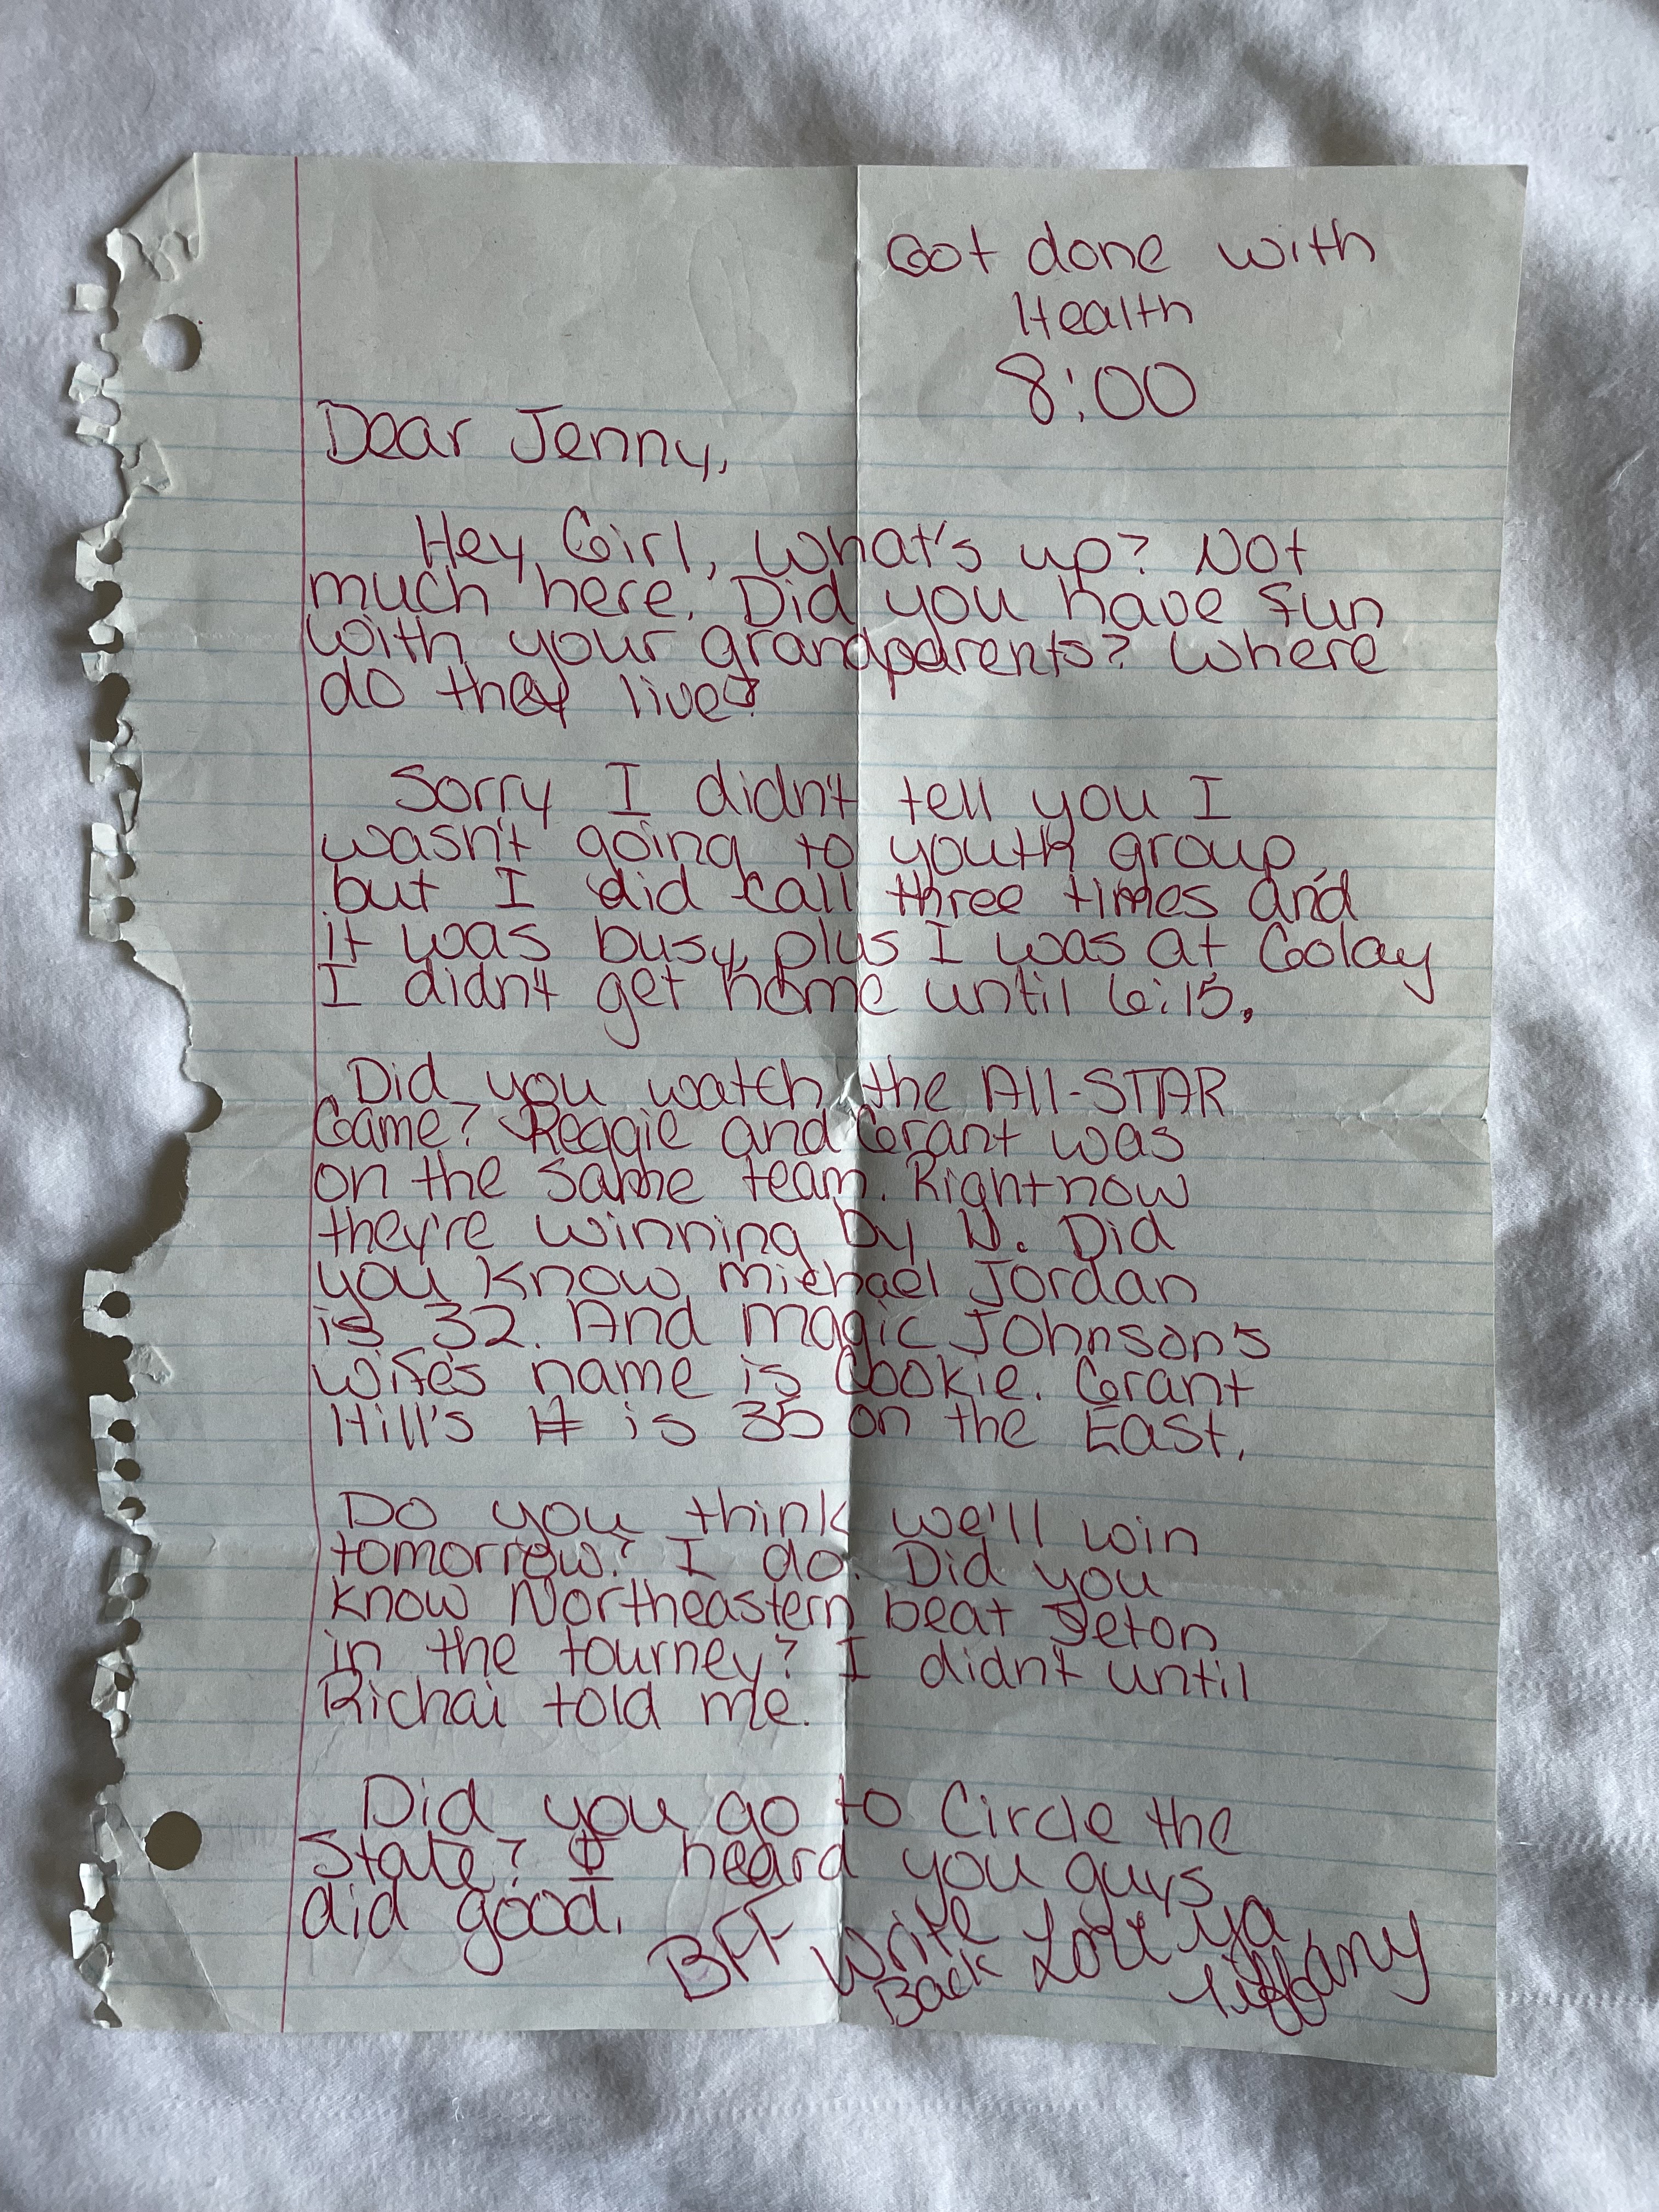 Got done with
Health
8:00
Dear Jenny,
Hey Girl, What's up? Not
much here. Did you have fun
with your grandparents? Where
do they live?
Sorry I didn't tell you I
wasn't going to youth group,
but I did call three times and
it was busy, plus I was at Golay
I didn't get home until 6:15.
Did you watch the All-STAR
Game? Reggie and Grant was
on the same team. Right now
they're winning by
Did
you know Michael Jordan
is 32. And Magic Johnson's
wife's name is Cookie. Grant
Hill's # is 35 on the East.
Do you think we'll win
tomorrow? I do. Did you
know Northeastern beat Seton
in the tourney? I didn't until
Richai told me.
Did you go to Circle the
State? I heard you guys
did good.
BFF Write Back Love ya
Tiffany